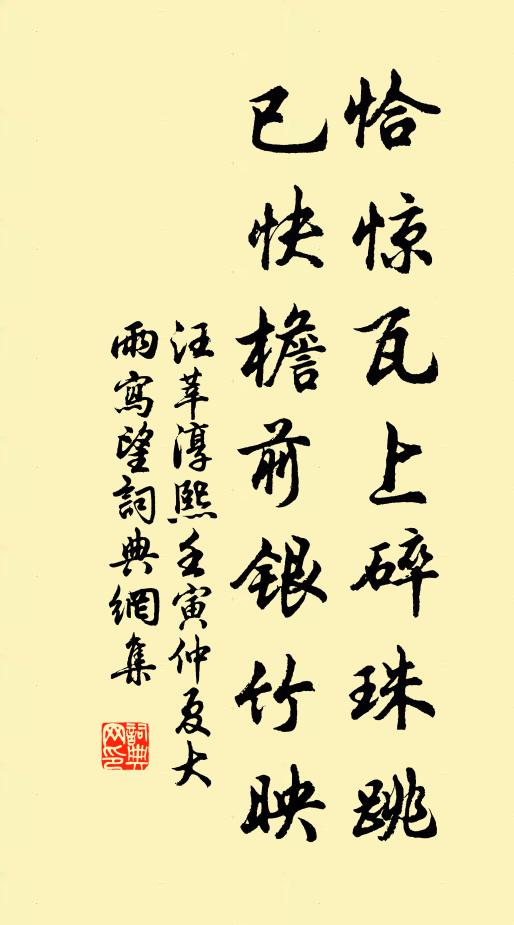 恰惊瓦上碎珠跳
已快檐前银竹映
汪莘淳熙壬寅仲夏大
雨寫望詞典網集
詞典
网印